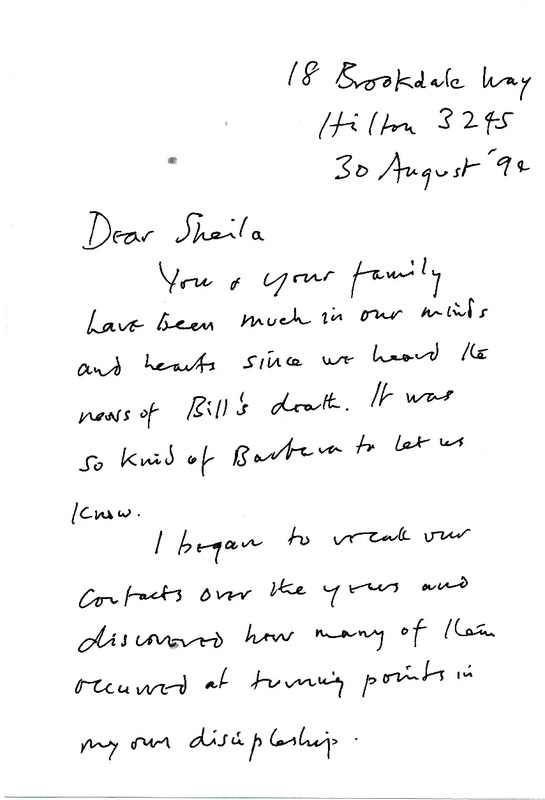 18 Brookdale Way
Hilton 3245
30 August '92
Dear Sheila
You & your family
have been much in our minds
and hearts since we heard the
news of Bill's death. It was
so kind of Barbara to let us
know.
I began to recall our
contacts over the years and
discovered how many of them
occurred at turning points in
my own discipleship.